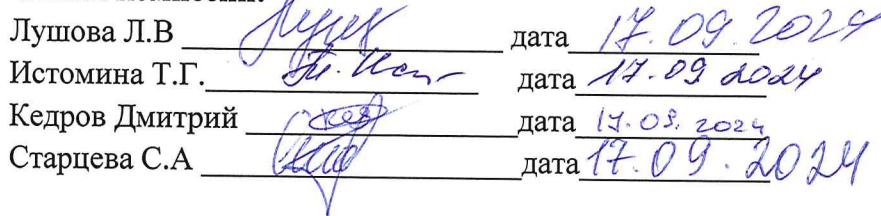 Лушова Л.В дата 17.09.2024
Истомина Т.Г. дата 17.09 2024
Кедров Дмитрий дата 17.09.2024
Старцева С.А дата 17.09.2024